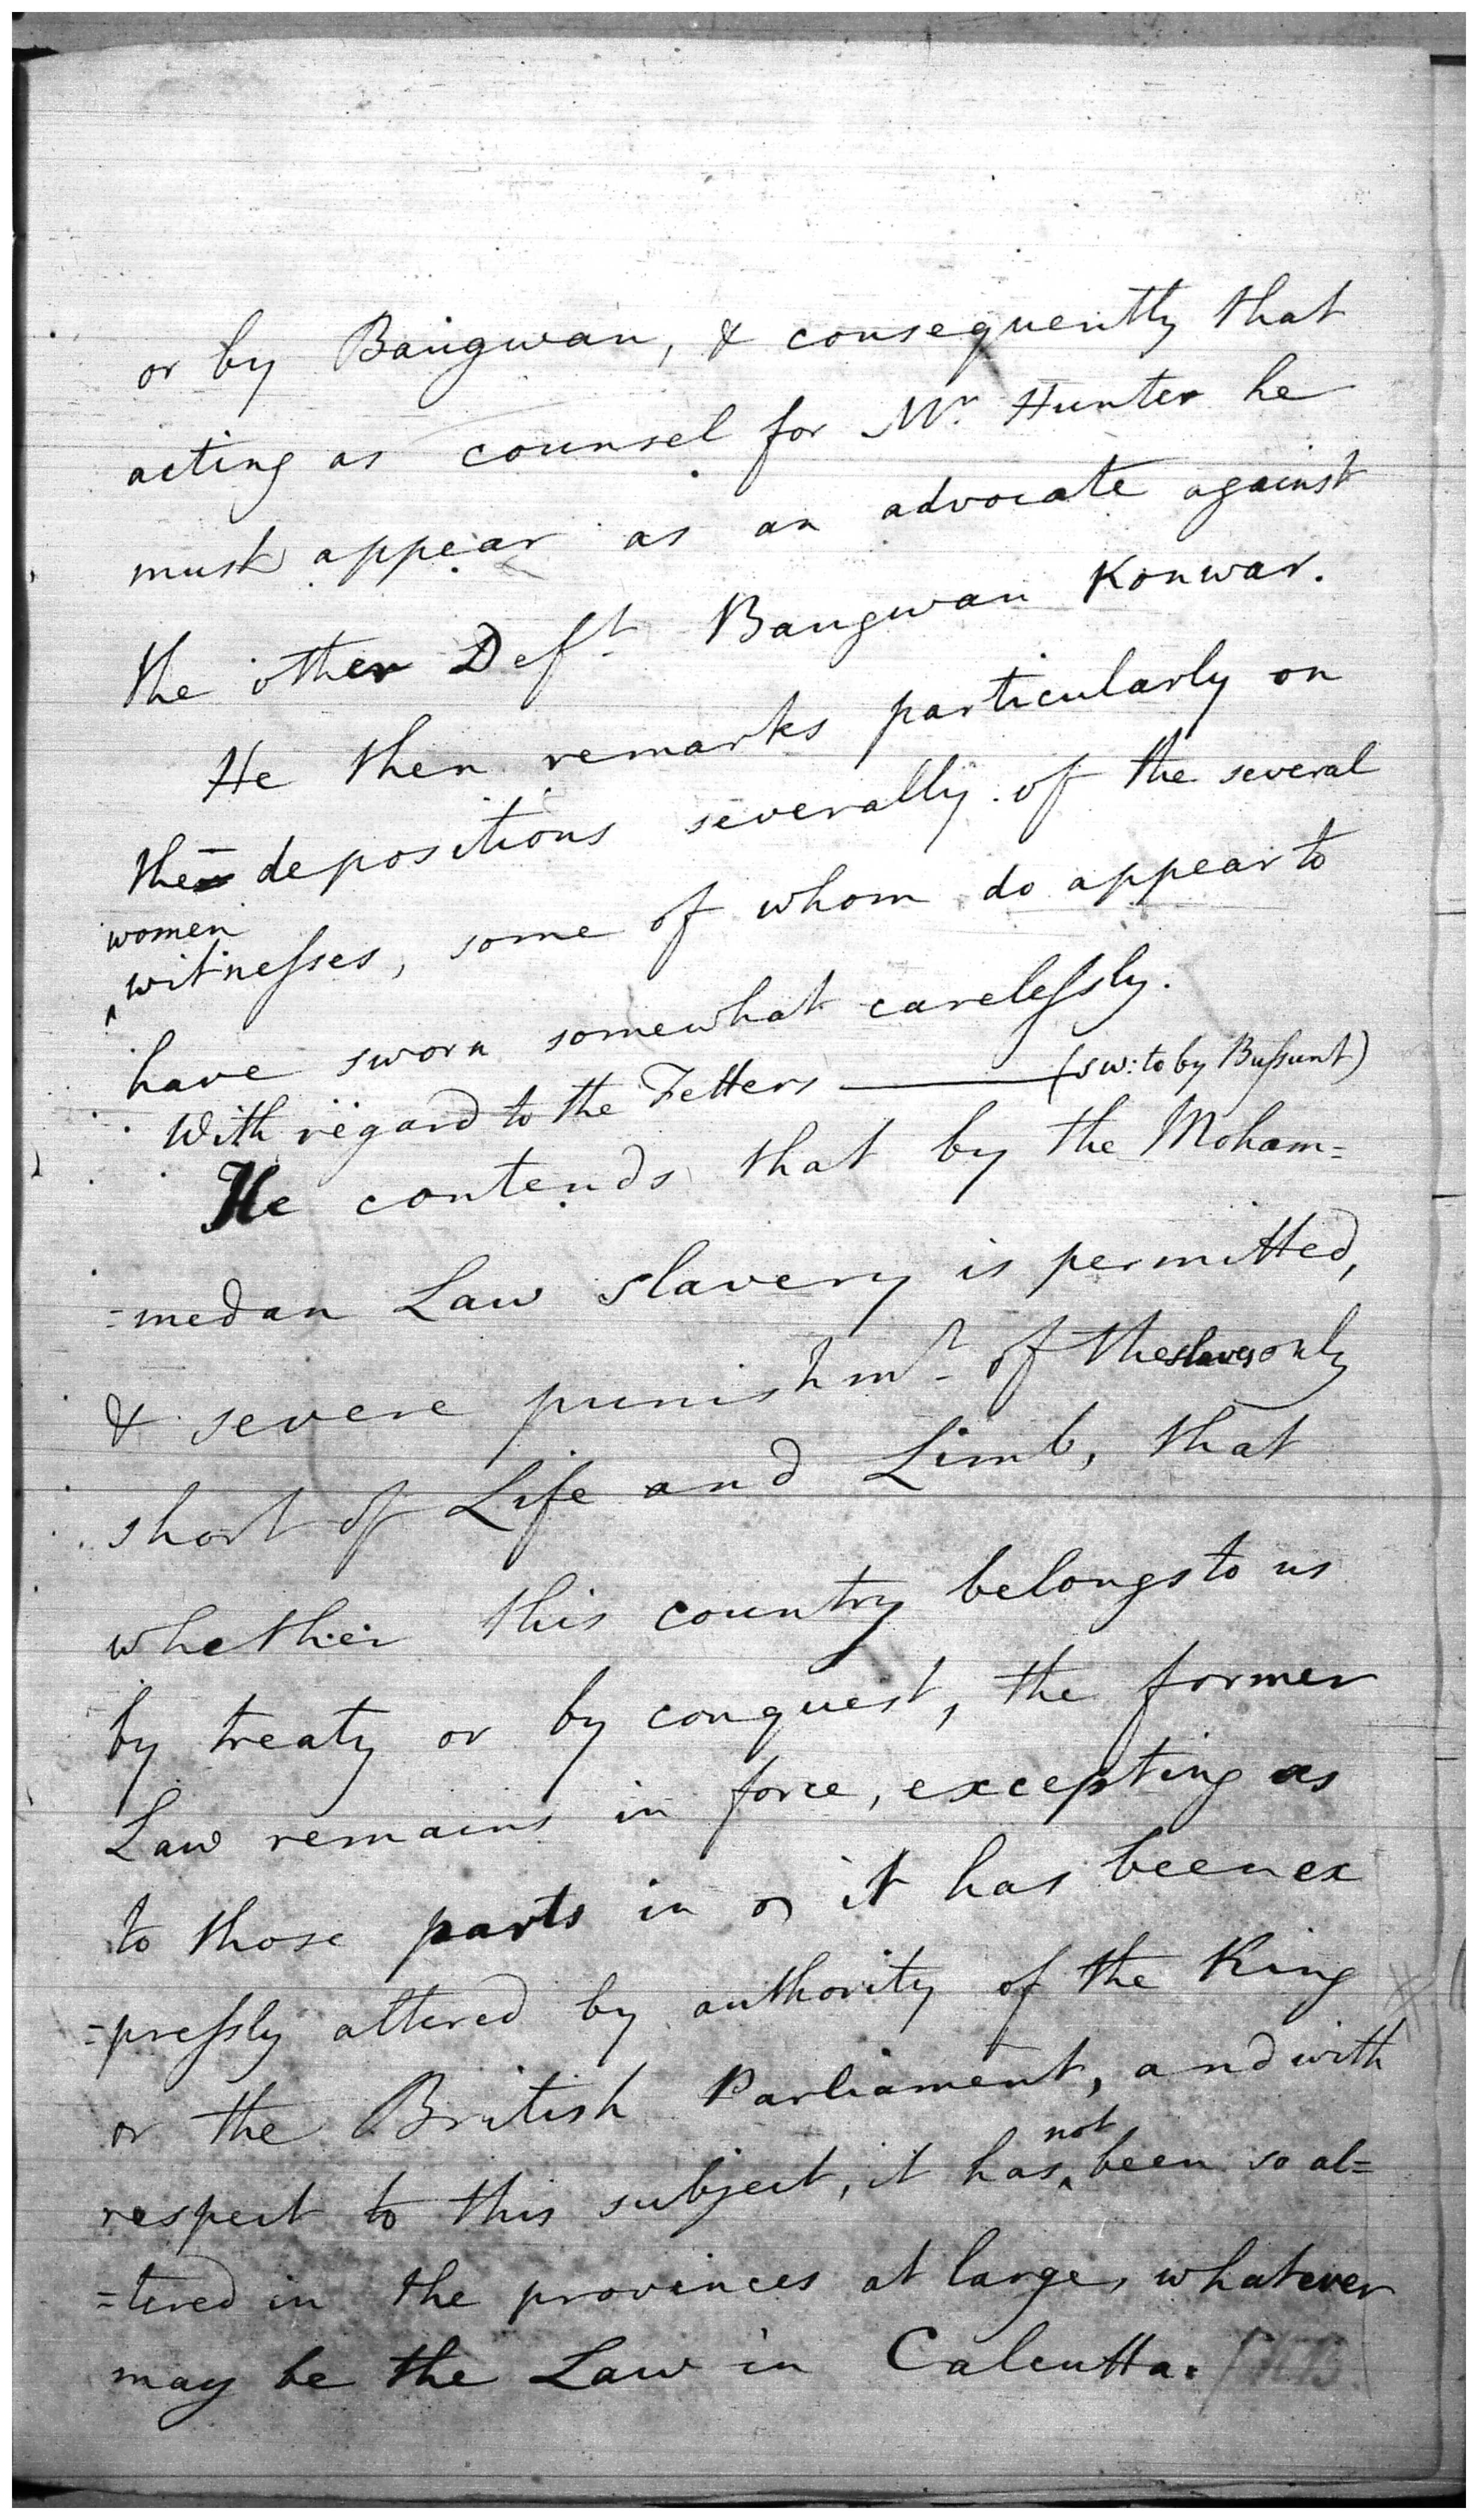 or by Baugwan, & consequently that
acting as counsel for Mr. Hunter he
must appear as an advocate against
the other Deft. Baugwan Konwar.
He then remarks particularly on
the depositions severally of the several
women
witnesses, some of whom do appear to
have sworn somewhat carelessly.
With regard to the Fetters ——— (sw: to by Bussunt)
He contends that by the Moham=
=medan Law slavery is permitted,
& severe punishmt. of the slaves only
short of Life and Limb, that
whether this country belongs to us
by treaty or by conquest, the former
Law remains in force, excepting as
to those parts in it has been ex
=pressly altered by authority of the King
or the British Parliament, and with
respect to this subject, it has not been so al=
=tered in the provinces at large, whatever
may be the Law in Calcutta.